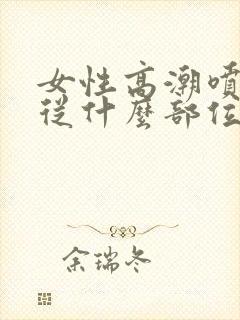 女性高潮噴
從什麼部位
余瑞冬